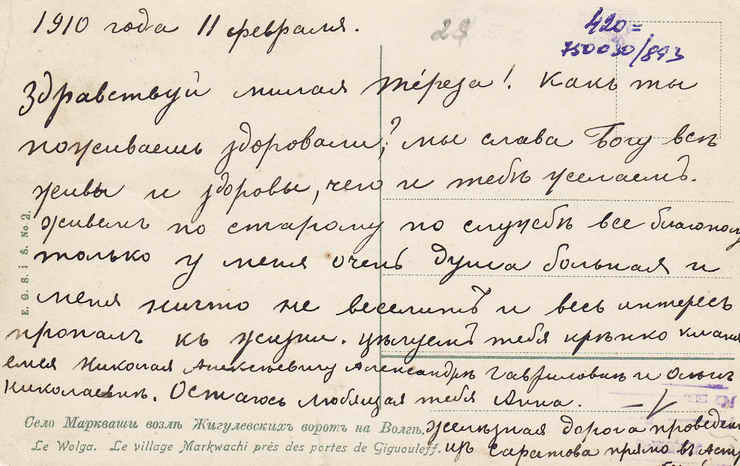 1910 года 11 февраля.
29
420=
750030/893
Здравствуй милая Тереза! Какъ ты
поживаешь здоровали? мы слава Богу всѣ
живы и здоровы, чего и тебѣ желаемъ.
живемъ по старому по службѣ все благополу
только у меня очень душа больная и
меня ничто не веселитъ и весь интересъ
пропалъ къ жизни. цѣлуемъ тебя крѣпко кланя
емся Николая Алексѣевичу Александрѣ Гавриловнѣ и
Николаевнѣ. Остаюсь любящая тебя Анна.
желѣзная дорога проведен
изъ Саратова прямо въ Астр
E. G. S. i S. No. 2.
Село Маркваши возлѣ Жигулевскихъ воротъ на Волгѣ.
Le Wolga. Le village Markwachi près des portes de Giguouleff.